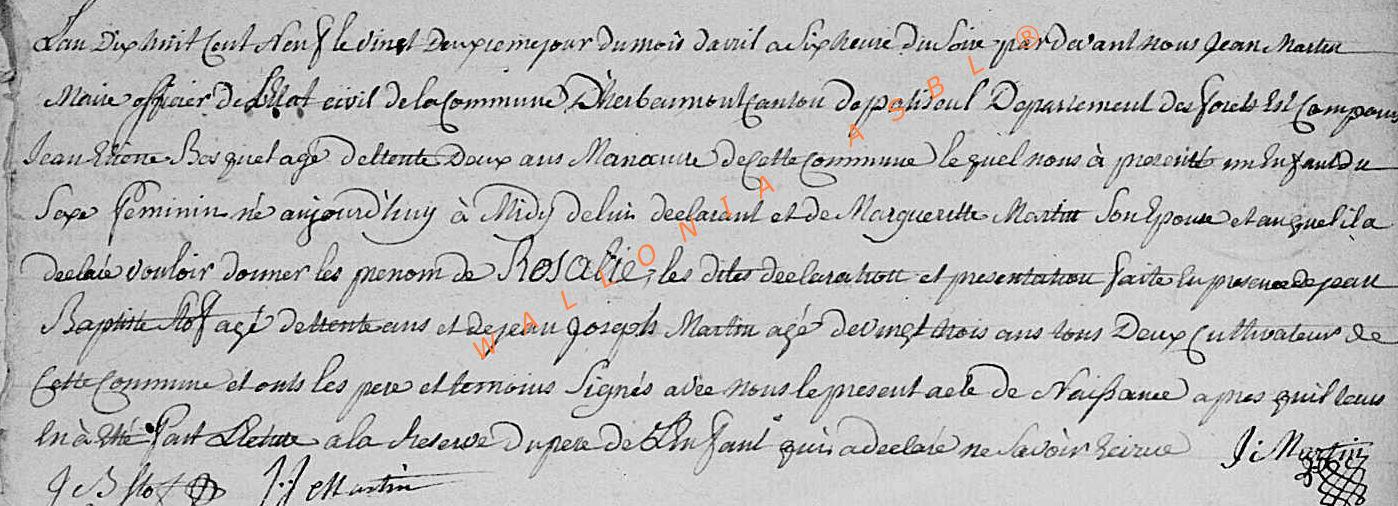 Lan Dix huit Cent Neuf le vingt Deuxieme jour du mois davril a Six heure du Soire par devant nous jean Martin
Maire officier de L'Etat civil de la Commune D'herbeumont Canton de paliseul Departement des forets Est Comparus
Jean Etiene Bosquet agé de trente Deux ans Manœuvre de Cette Commune le quel nous à presenté un Enfant du
Sexe feminin né aujourd'huy à Midy de lui declarant et de Marguerite Martin Son Epouse et auquel il a
declaré vouloir donner les prenom de Rosalie, les dites declaration et presentation faite En presence de jean
Baptiste Stof agé de trente ans et de jean joseph Martin agé de vingt trois ans tous Deux Cultivateur de
Cette Commune et onts les pere et temoins Signés avec nous le present acte de Naissance apres quil leurs
En à Eté fait Lecture a la Reserve du pere de L'Enfant qui a declaré ne Savoir Ecrire J: Martin
J B Stof J. J. Martin
WALLONIA ASBL ®